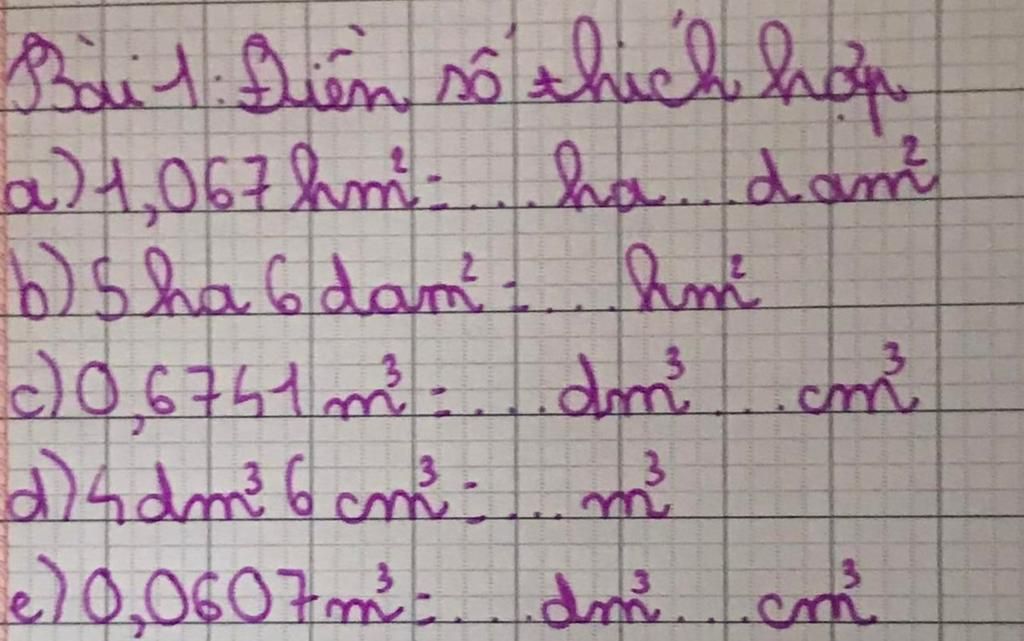 Bài 1: Điền số thích hợp
a) 1,067 hm² = ... ha ... dam²
b) 5 ha 6 dam² = ... hm²
c) 0,6751 m³ = ... dm³ ... cm³
d) 5 dm³ 6 cm³ = ... m³
e) 0,0607 m³ = ... dm³ ... cm³